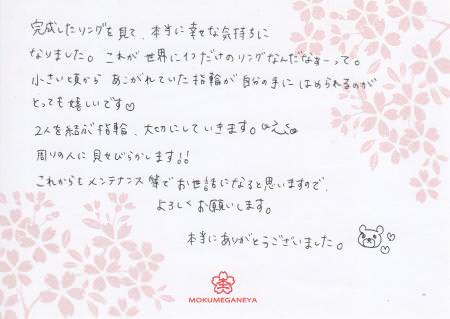 完成したリングを見て、本当に幸せな気持ちに
なりました。これが世界に1つだけのリングなんだなぁーって。
小さい頃から あこがれていた指輪が自分の手に はめられるのが
とっても嬉しいです♡
2人を結ぶ指輪、大切にしていきます。
周りの人に見せびらかします!!
これからもメンテナンス等でお世話になると思いますので、
よろしくお願いします。
本当にありがとうございました。
MOKUMEGANEYA